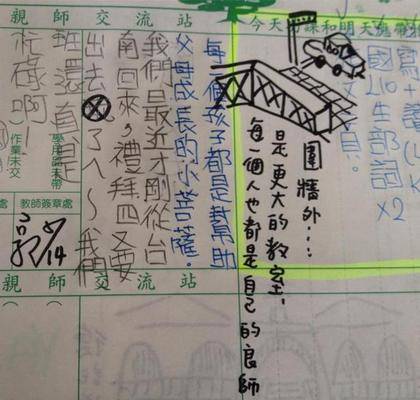 親師交流站
今天
和明天進帶
國L10生部詞×2
圍牆外…
是更大的教室,
每一個人也都是自己的良師
每一個孩子都是幫助
父母成長的小菩薩。
我們是最近才剛從台
南回來,禮拜四又要
出去ⓧ了ㄟ~我們
班還真是
忙碌啊!
學用品未帶
作業未交
處
教師簽章處
5/14
親師交流站